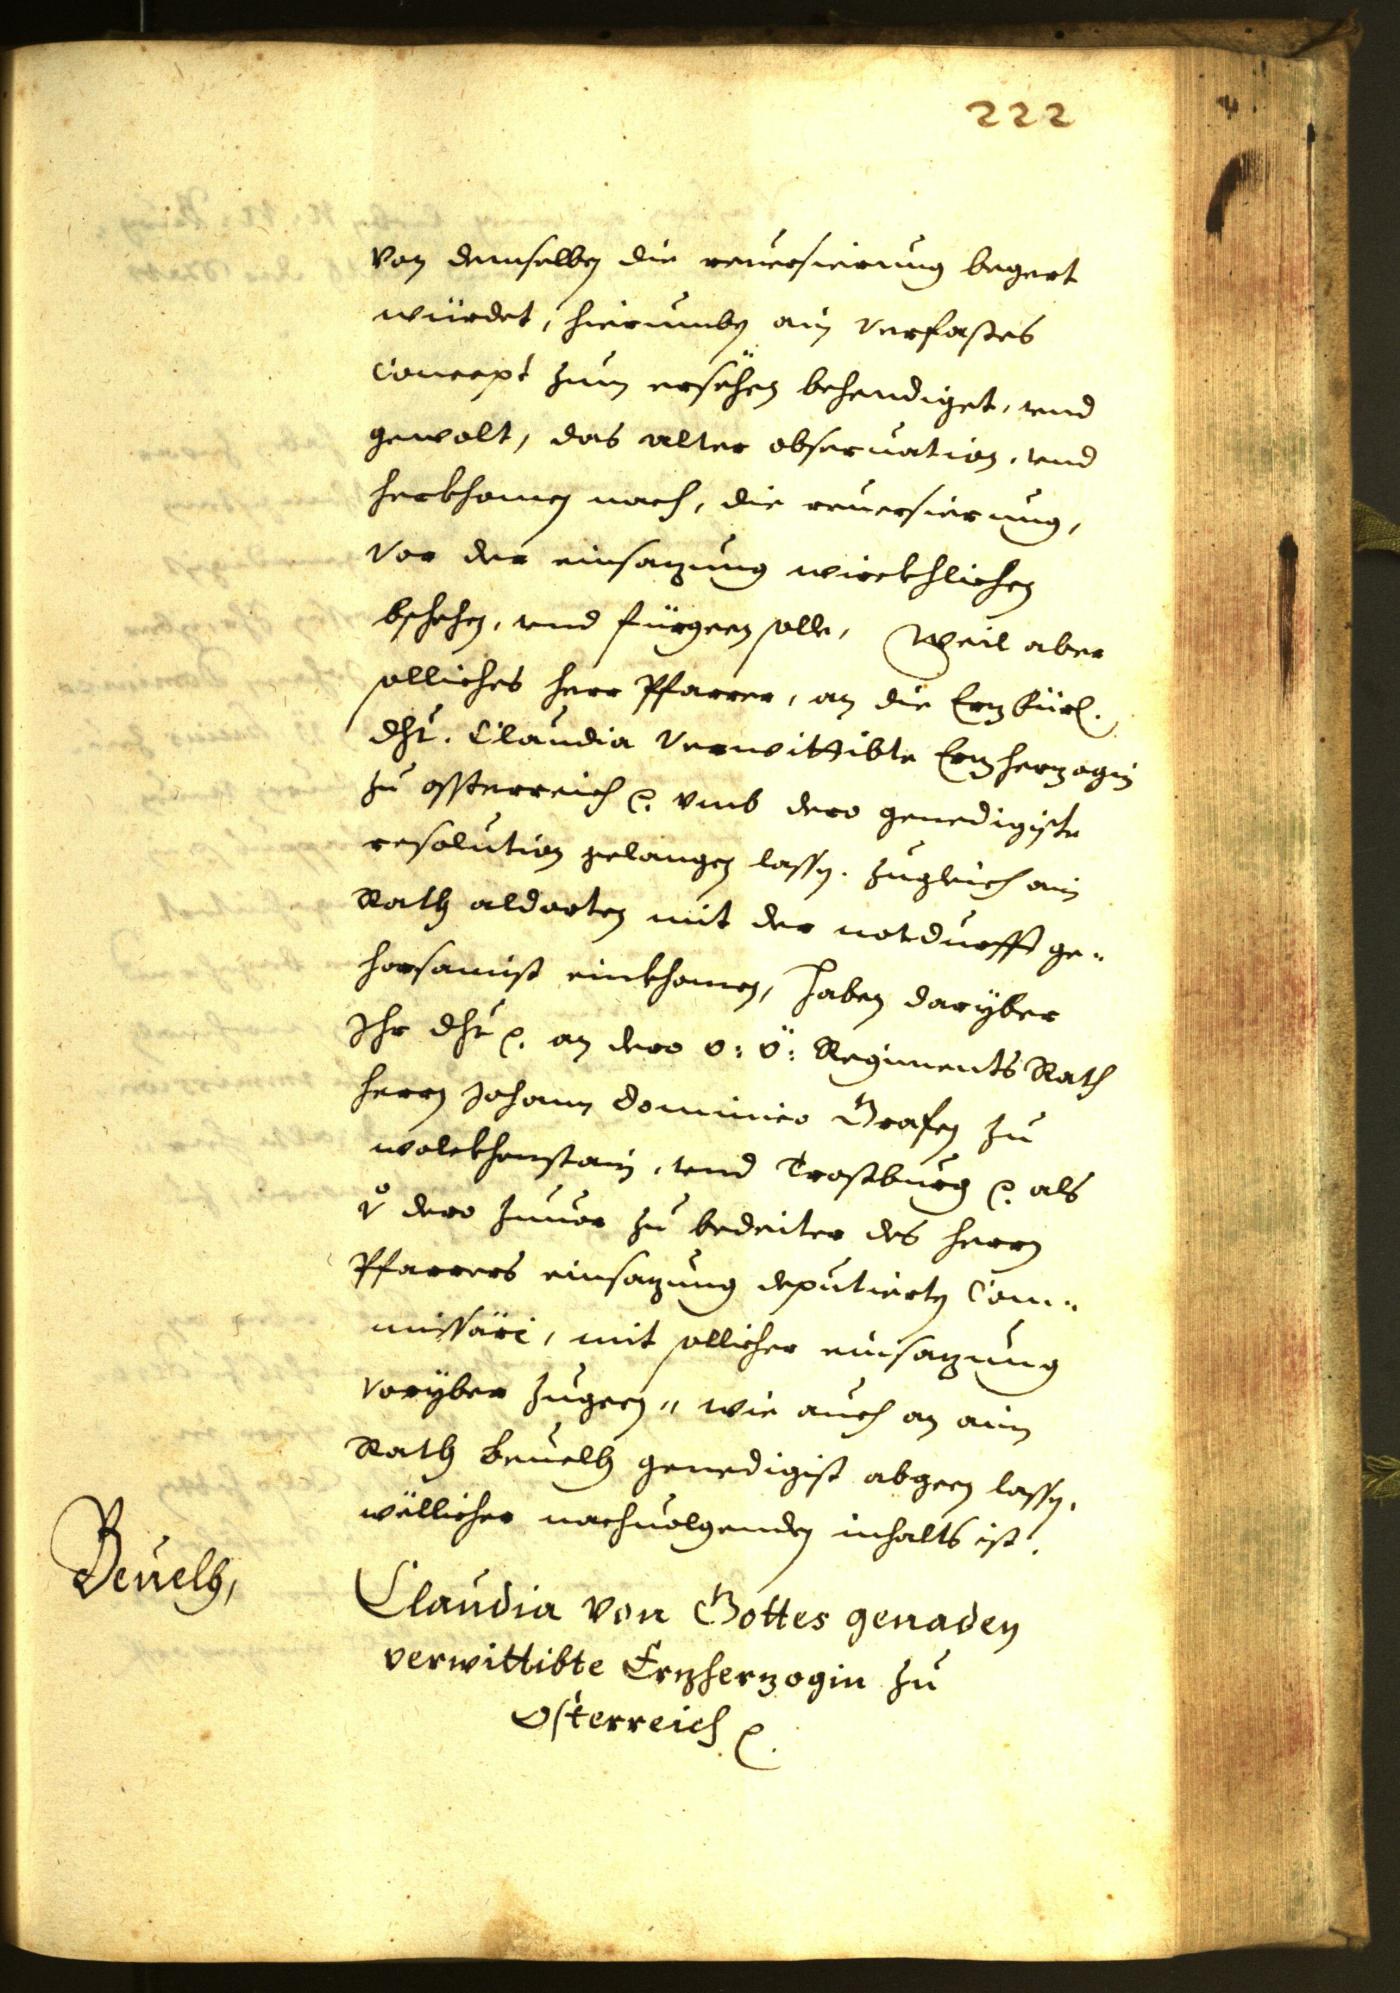 222
Von demselben die reuersierung begert
würdet, hierumben ain verfastes
Concept zum ersëhen behendiget, vnd
gewolt, das alter obseruation, vnd
herkhomen nach, die reuersierung,
vor der einsazung wirckhlichen
bschehen, vnd fürgeen solle, Weil aber
solliches herr Pfarrer, an die Erzfürl.
dht. Claudia Verwittibte Erzherzogin
zu Össterreich p. vmb dero genedigiste
resolution gelangen lassen. zugleich ain
Rath aldorten mit der notdurfft ge-
horsamist einkhomen, haben darÿber
Ihr dht p. an dero o: ö: Regiments Rath
herrn Johann Dominico Grafen zu
wolckhenstain, vnd Trostburg p. als
von dero zuuor zu bedeiter des herrn
Pfarrers einsazung deputierten Com-
missäri, mit sollicher einsazung
vorÿber zugeen, wie auch an ain
Rath beuelh genedigist abgeen lassen,
wëllicher nachuolgenden inhalts ist.
Beuelh,
Claudia von Gottes genaden
verwittibte Erzherzogin zu
Osterreich p.